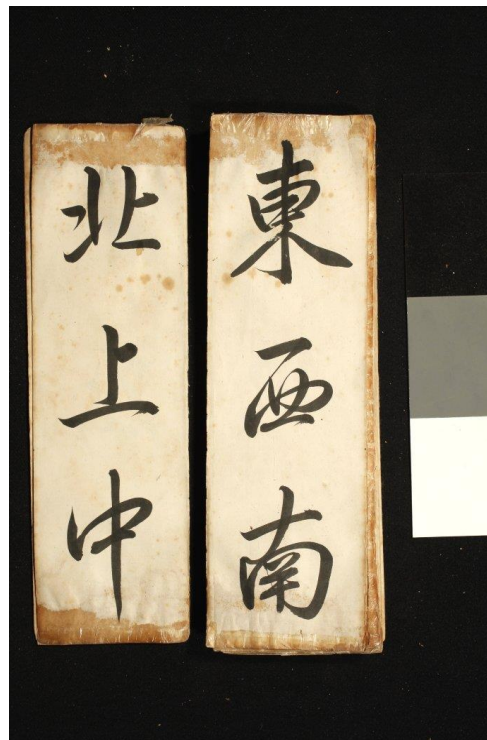 東西南
北上中